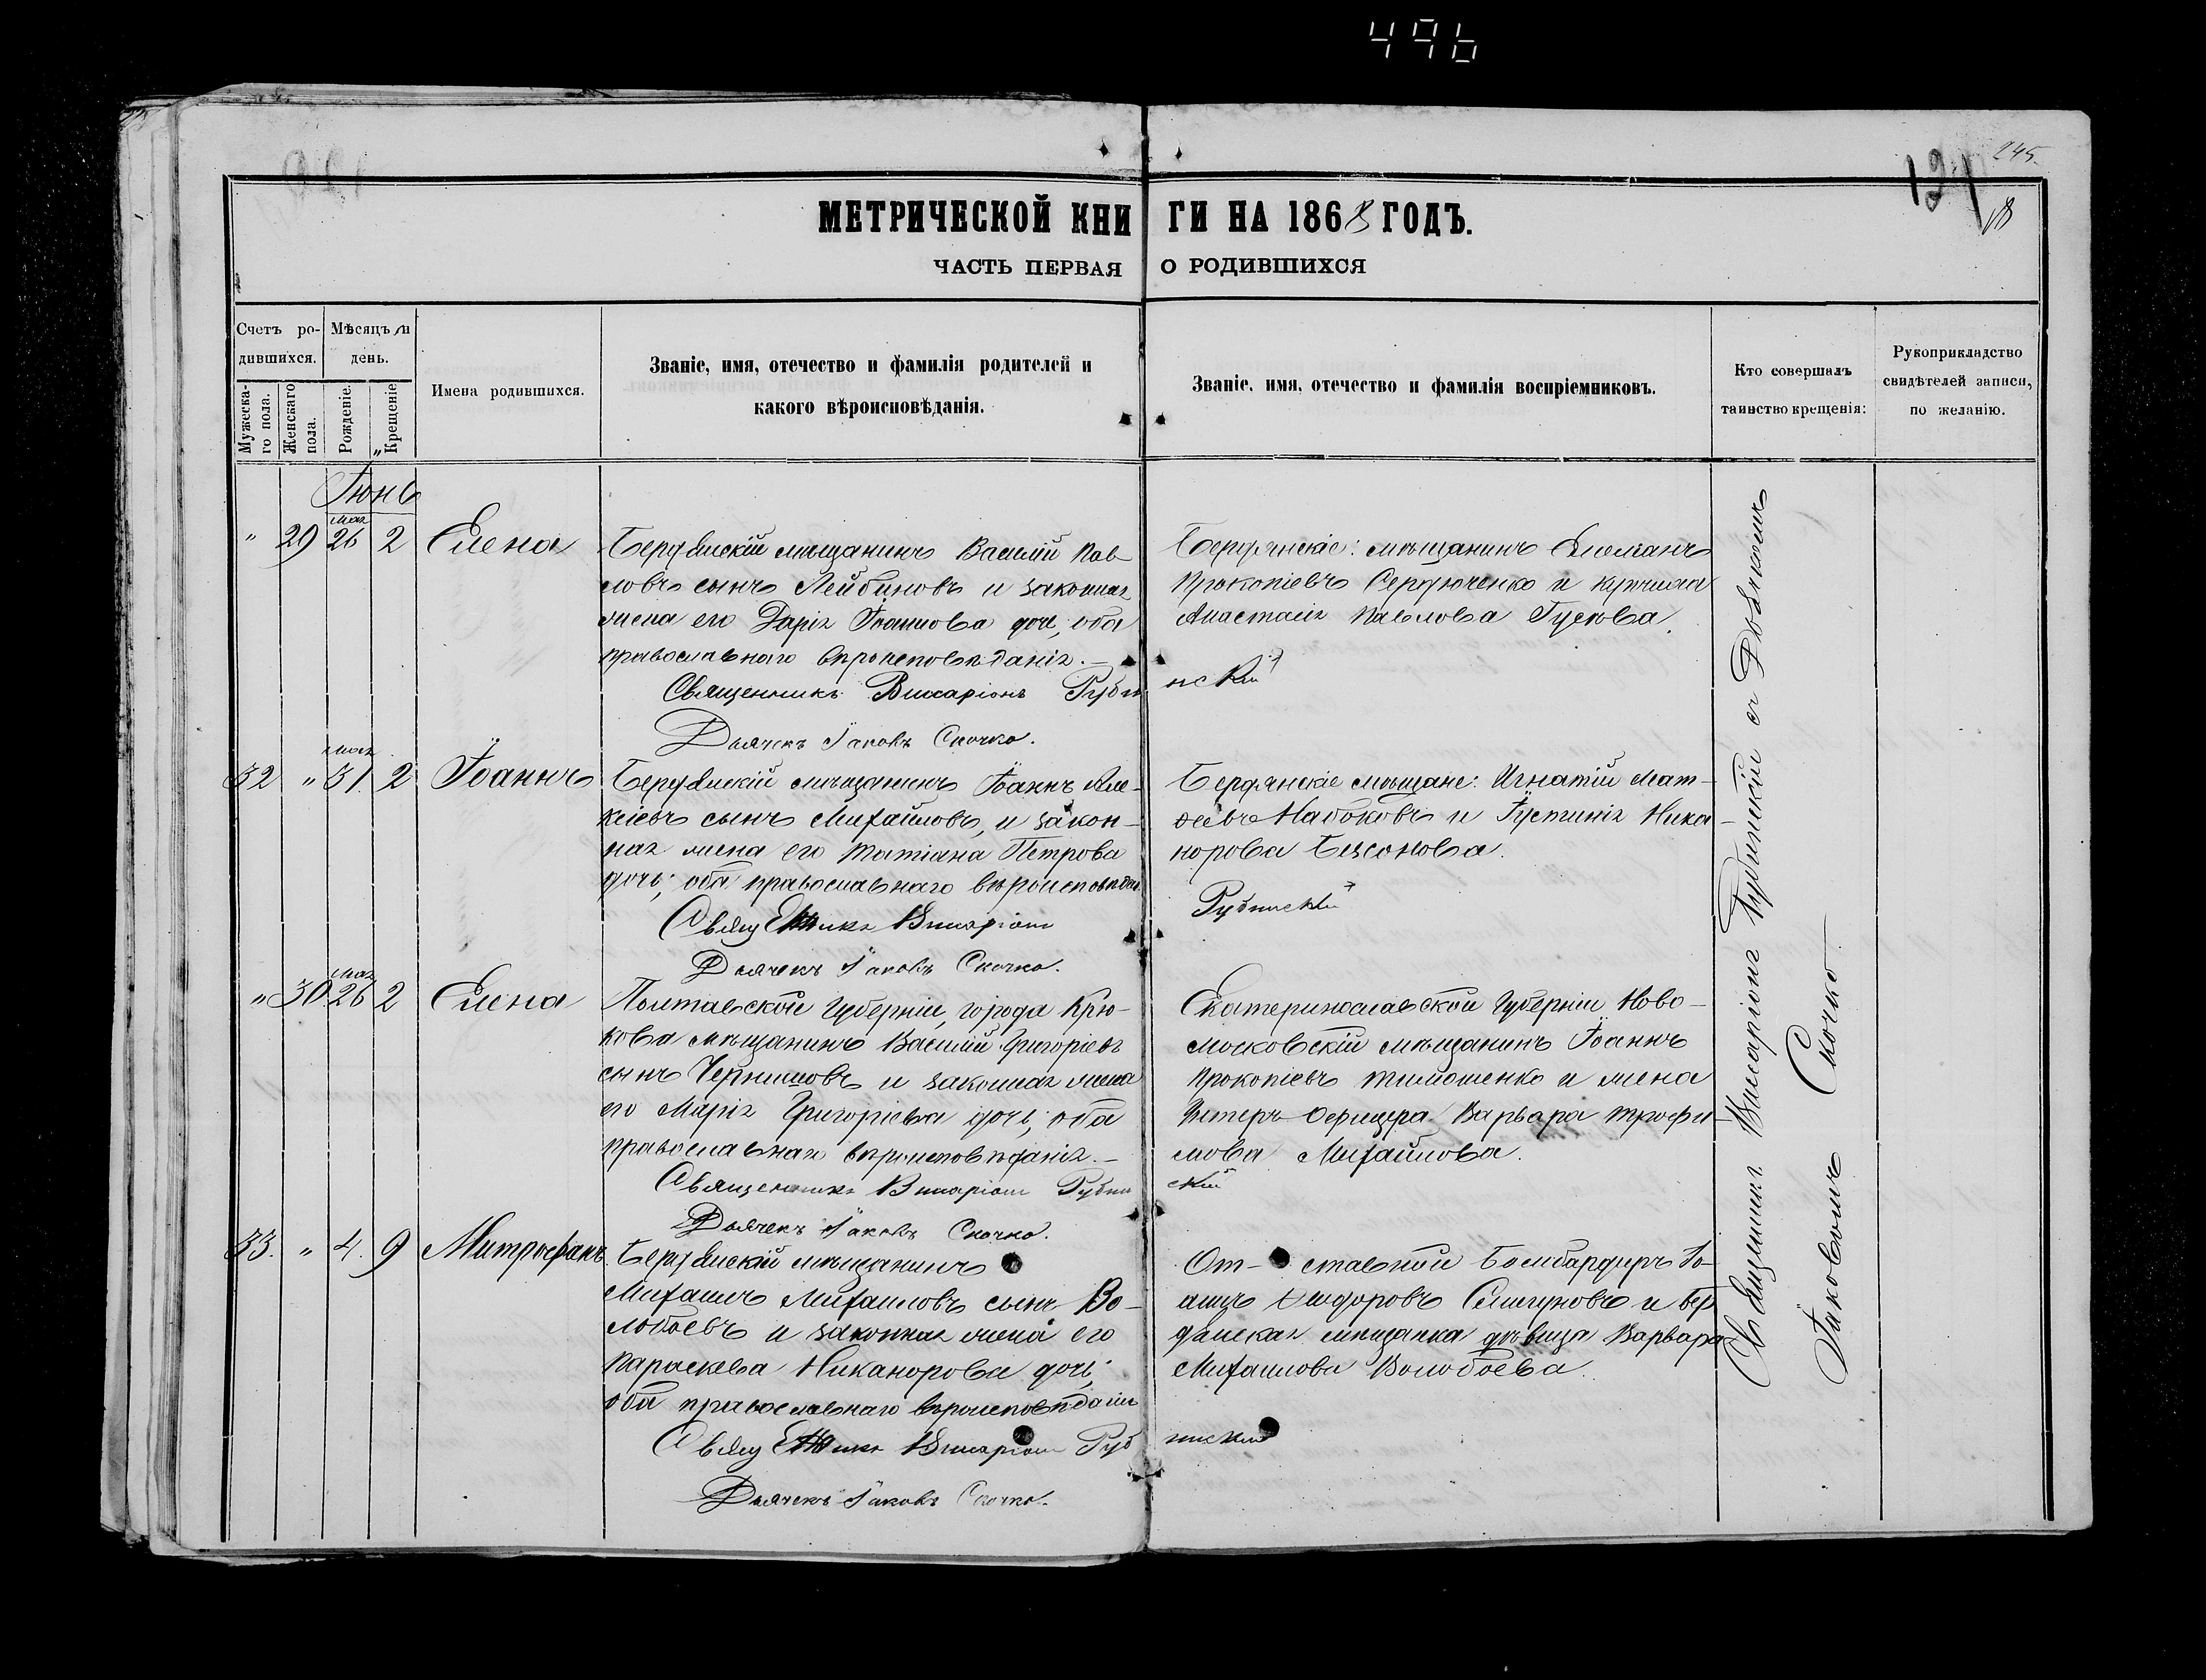 496
245.
121
18
МЕТРИЧЕСКОЙ КНИГИ НА 1868 ГОДЪ.
ЧАСТЬ ПЕРВАЯ О РОДИВШИХСЯ
Счетъ ро-
дившихся.
Мужеска-
го пола.
Женскаго
пола.
Мѣсяцъ и
день.
Рожденіе.
Крещеніе
Имена родившихся.
Званіе, имя, отечество и фамилія родителей и
какого вѣроисповѣданія.
Званіе, имя, отечество и фамилія воспріемниковъ.
Кто совершалъ
таинство крещенія:
Рукоприкладство
свидѣтелей записи,
по желанію.
Іюнь
" 29 мая 26 2 Елена
Бердянскій мѣщанинъ Василій Пав-
ловъ сынъ Лейбиновъ и законная
жена его Дарія Іоаннова дочь, оба
православнаго вѣроисповѣданія.—
Священникъ Виссаріонъ Рубинскій
Дьячекъ Іаковъ Скочко.
Бердянскіе: мѣщанинъ
Прокопіевъ Сердюченко и
Анастасія Павлова Гусева.
32 " мая 31. 2 Іоаннъ
Бердянскій мѣщанинъ Іоаннъ Але-
ксіевъ сынъ Михайловъ, и закон-
ная жена его Татіана Петрова
дочь; оба православнаго вѣроисповѣдан.
Священникъ Виссаріонъ Рубинскій
Дьячекъ Іаковъ Скочко.
Бердянскіе мѣщане: Игнатій Мат-
ѳеевъ Набоковъ и Іустинія Ника-
норова Безсонова.
" 30. мая 26 2 Елена
Полтавской Губерніи, города Крю-
кова мѣщанинъ Василій Григоріевъ
сынъ Чернишовъ и законная жена
его Марія Григоріева дочь; оба
православнаго вѣроисповѣданія.—
Священникъ Виссаріонъ Рубинскій
Дьячекъ Іаковъ Скочко.
Екатеринославской Губерніи Ново-
московскій мѣщанинъ Іоаннъ
Прокопіевъ Тимошенко и жена
Унтеръ-Офицера Варвара Трофи-
мова Михайлова.
33. " 4. 9 Митрофанъ.
Бердянскій мѣщанинъ
Михаилъ Михаиловъ сынъ Во-
лобоевъ и законная жена его
Параскева Никанорова дочь;
оба православнаго вѣроисповѣданія
Священникъ Виссаріонъ Рубинскій
Дьячекъ Іаковъ Скочко.
Отставной Бомбардиръ Іо-
аннъ и Бер-
дянская мѣщанка дѣвица Варвара
Михаилова Волобоева.
Священникъ Виссаріонъ Рубинскій съ Дьячкомъ
Іаковомъ Скочко